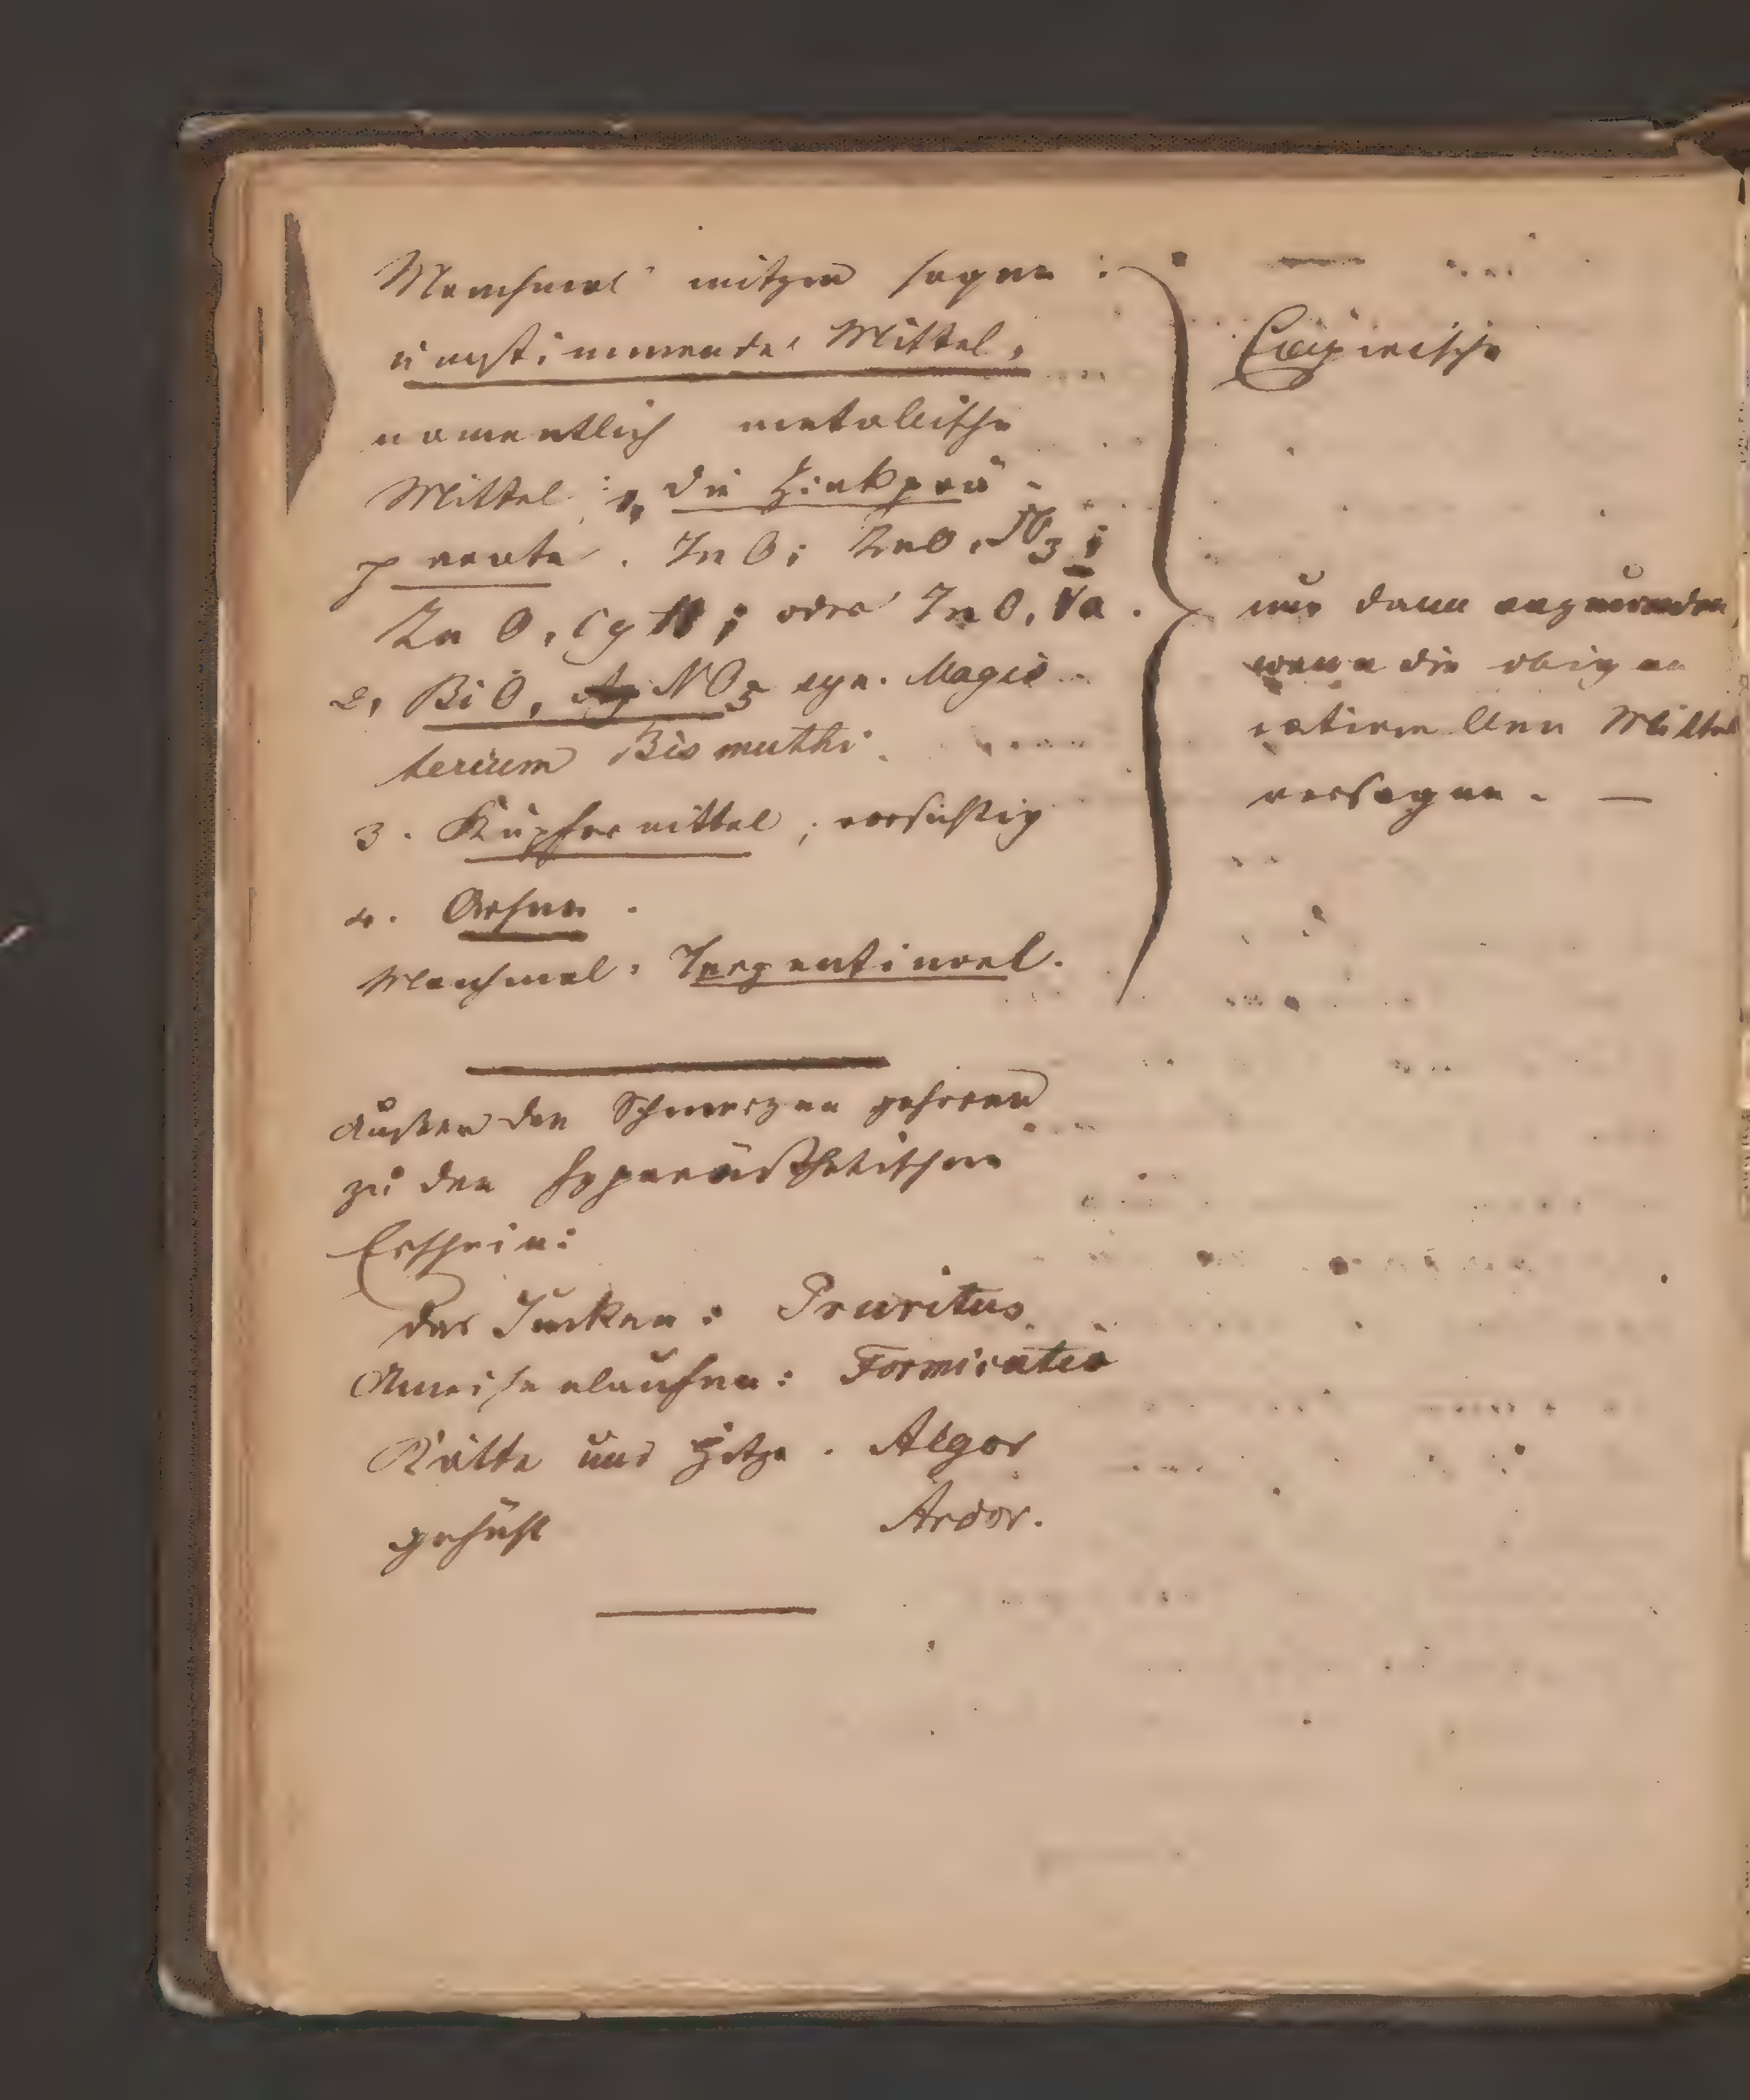 Manchmal nützen sogen:
umstimmende Mittel,
namentlich metallische
Mittel: 1, die Zinkprä-
parate. ZnO; ZnO, SO3;
ZnO, Cy H; oder ZnO, Va.
2, BiO, NO5 syn. Magis-
terium Bismuthi.
3. Kupfermittel; vorsichtig
4. Arsen.
Manchmal: Terpentinoel.
Empirische
nur dann anzuwenden,
wenn die obigen
rationellen Mittel
versagen. —
Außer den Schmerzen gehören
zu den hyperästhetischen
Erschein:
das Jucken: Pruritus
Ameisenlaufen: Formicatio
Kälte und Hitze. Algor
gefühl Ardor.